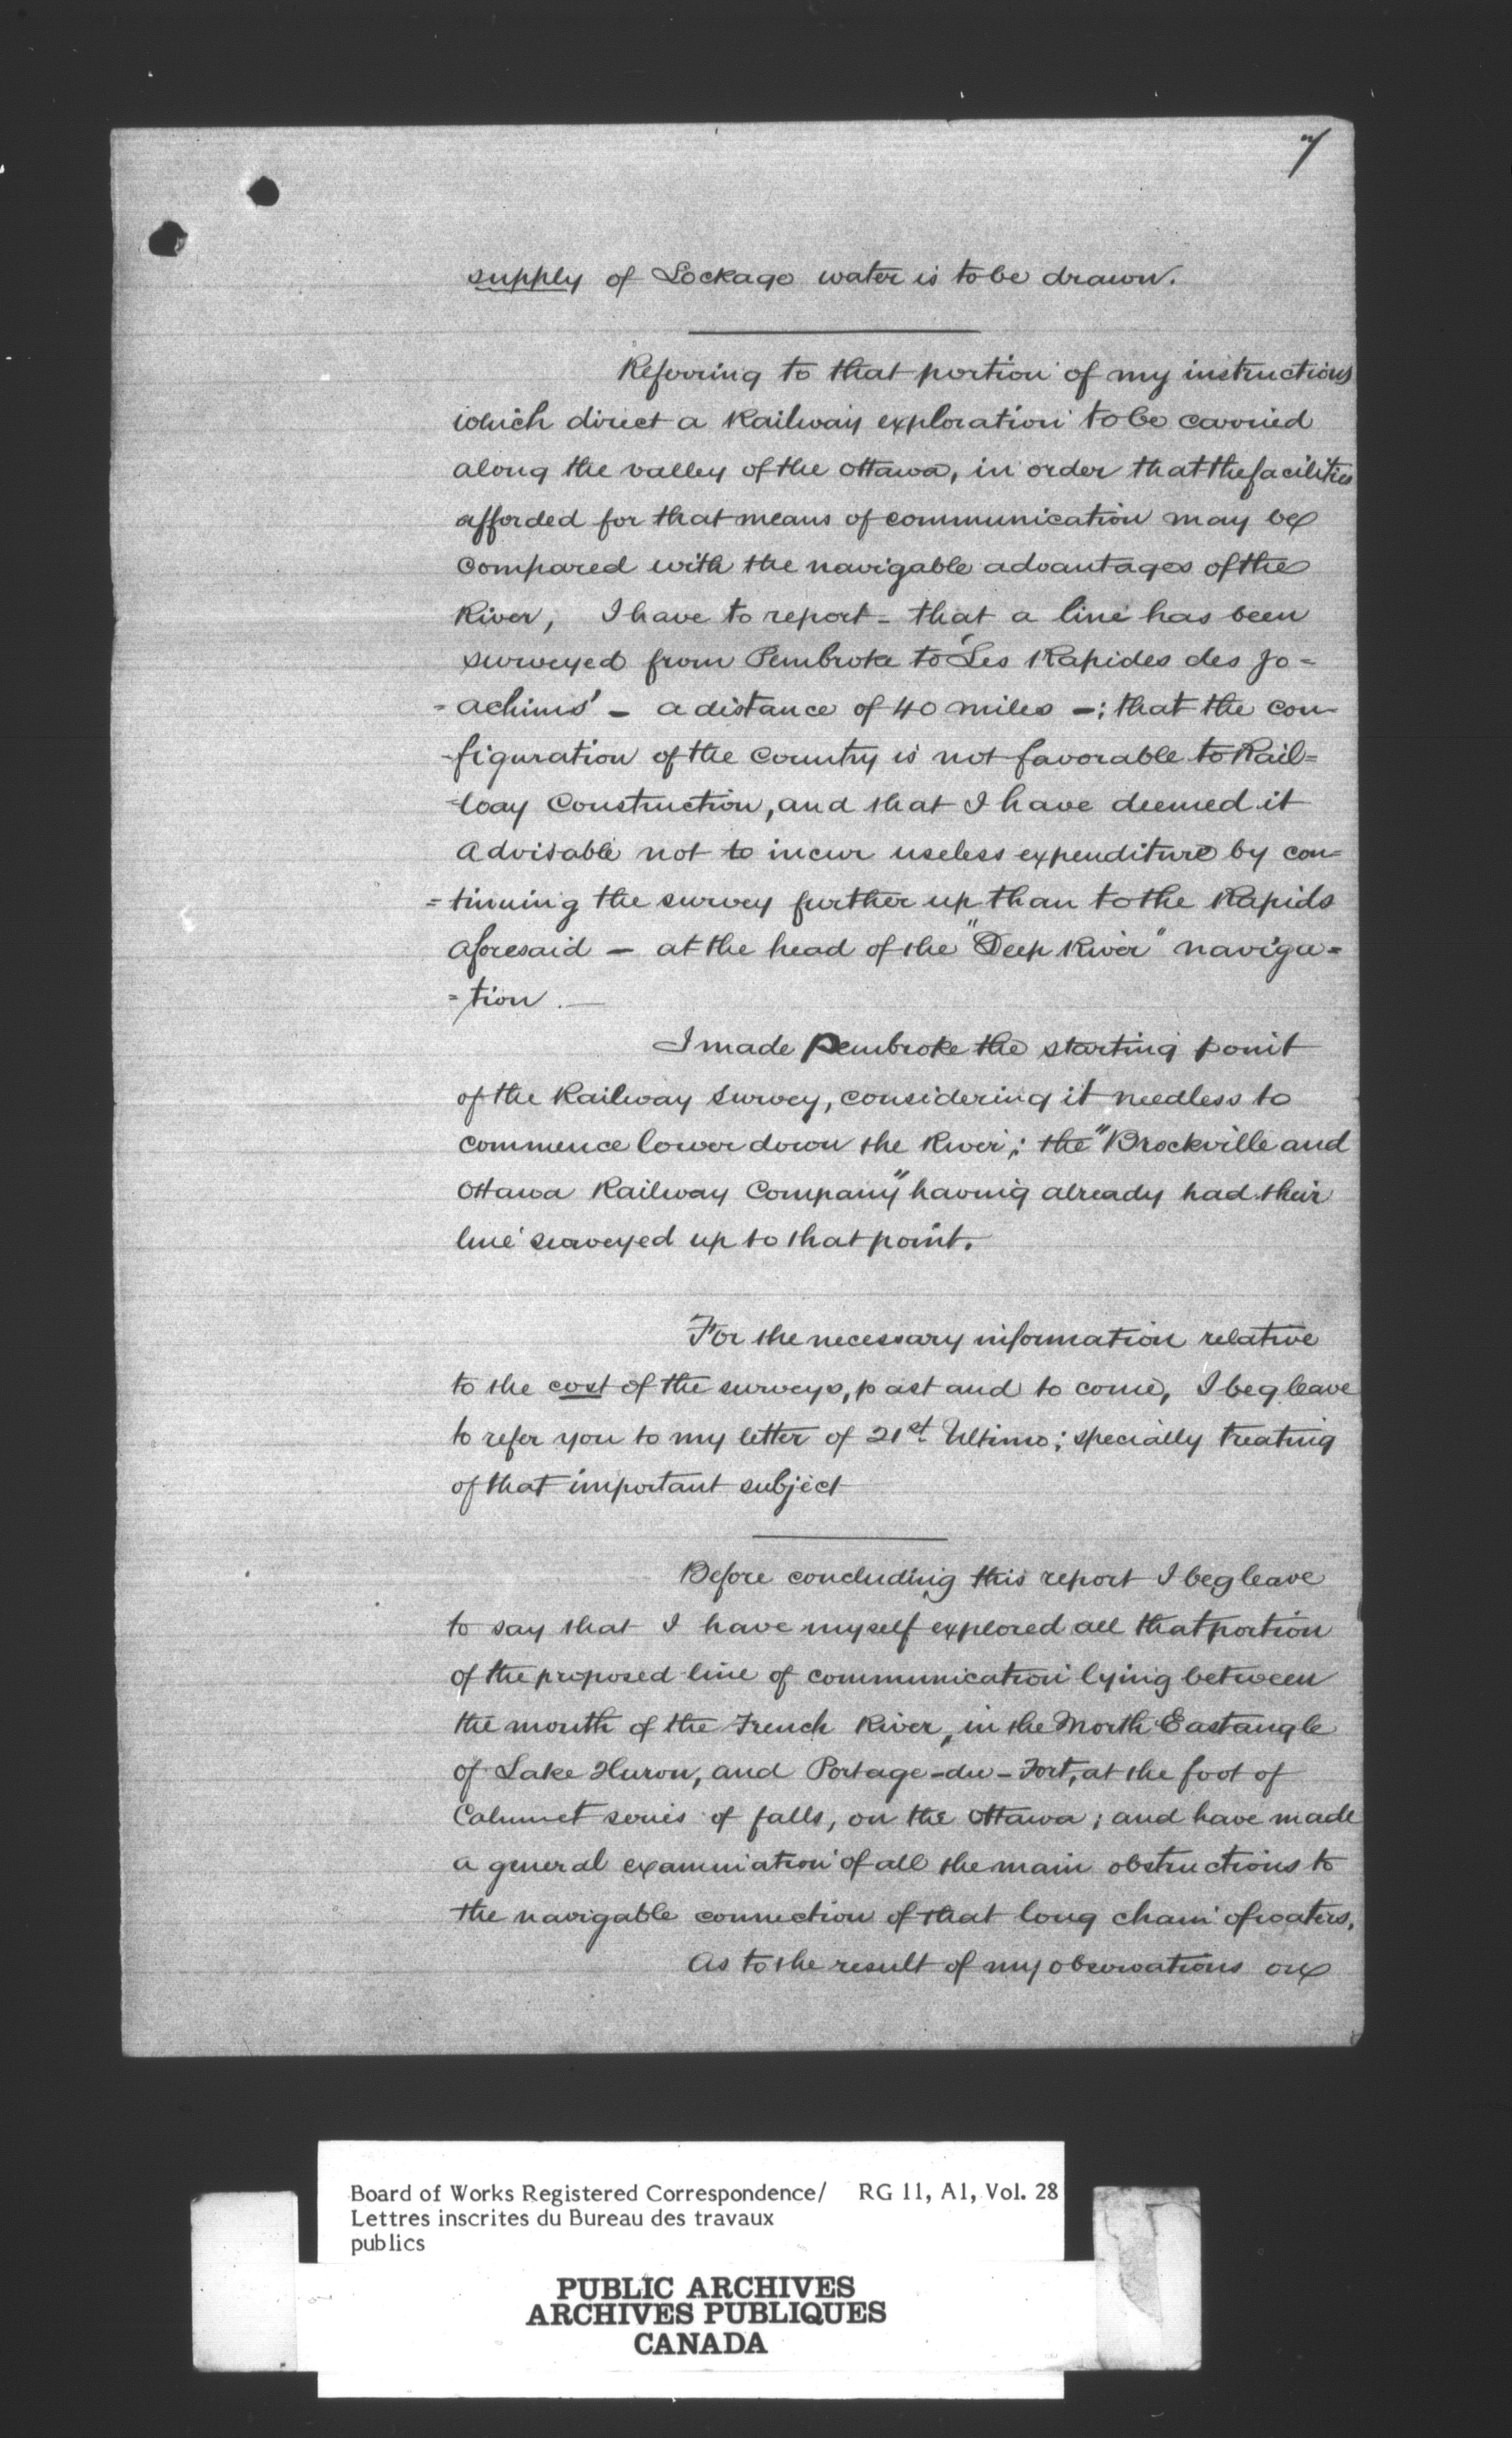 7
supply of Lockage water is to be drawn.
Referring to that portion of my instructions
which direct a Railway exploration to be carried
along the valley of the Ottawa, in order that the facilities
afforded for that means of communication may be
compared with the navigable advantages of the
River, I have to report - that a line has been
surveyed from Pembroke to 'Les Rapides des Jo=
=achims' - a distance of 40 miles -: that the con-
-figuration of the Country is not favorable to Rail=
=way Construction, and that I have deemed it
advisable not to incur useless expenditure by con=
=tinuing the survey further up than to the Rapids
aforesaid - at the head of the "Deep River" naviga=
=tion. —
I made Pembroke the starting point
of the Railway Survey, considering it needless to
commence lower down the River; the "Brockville and
Ottawa Railway Company" having already had their
line surveyed up to that point.
For the necessary information relative
to the cost of the surveys, past and to come, I beg leave
to refer you to my letter of 21st. Ultimo; specially treating
of that important subject
Before concluding this report I beg leave
to say that I have myself explored all that portion
of the proposed line of communication lying between
the mouth of the French River, in the North East angle
of Lake Huron, and Portage-du-Fort, at the foot of
Calumet series of falls, on the Ottawa; and have made
a general examination of all the main obstructions to
the navigable connection of that long chain of waters.
As to the result of my observations on
Board of Works Registered Correspondence/ RG 11, A1, Vol. 28
Lettres inscrites du Bureau des travaux
publics
PUBLIC ARCHIVES
ARCHIVES PUBLIQUES
CANADA